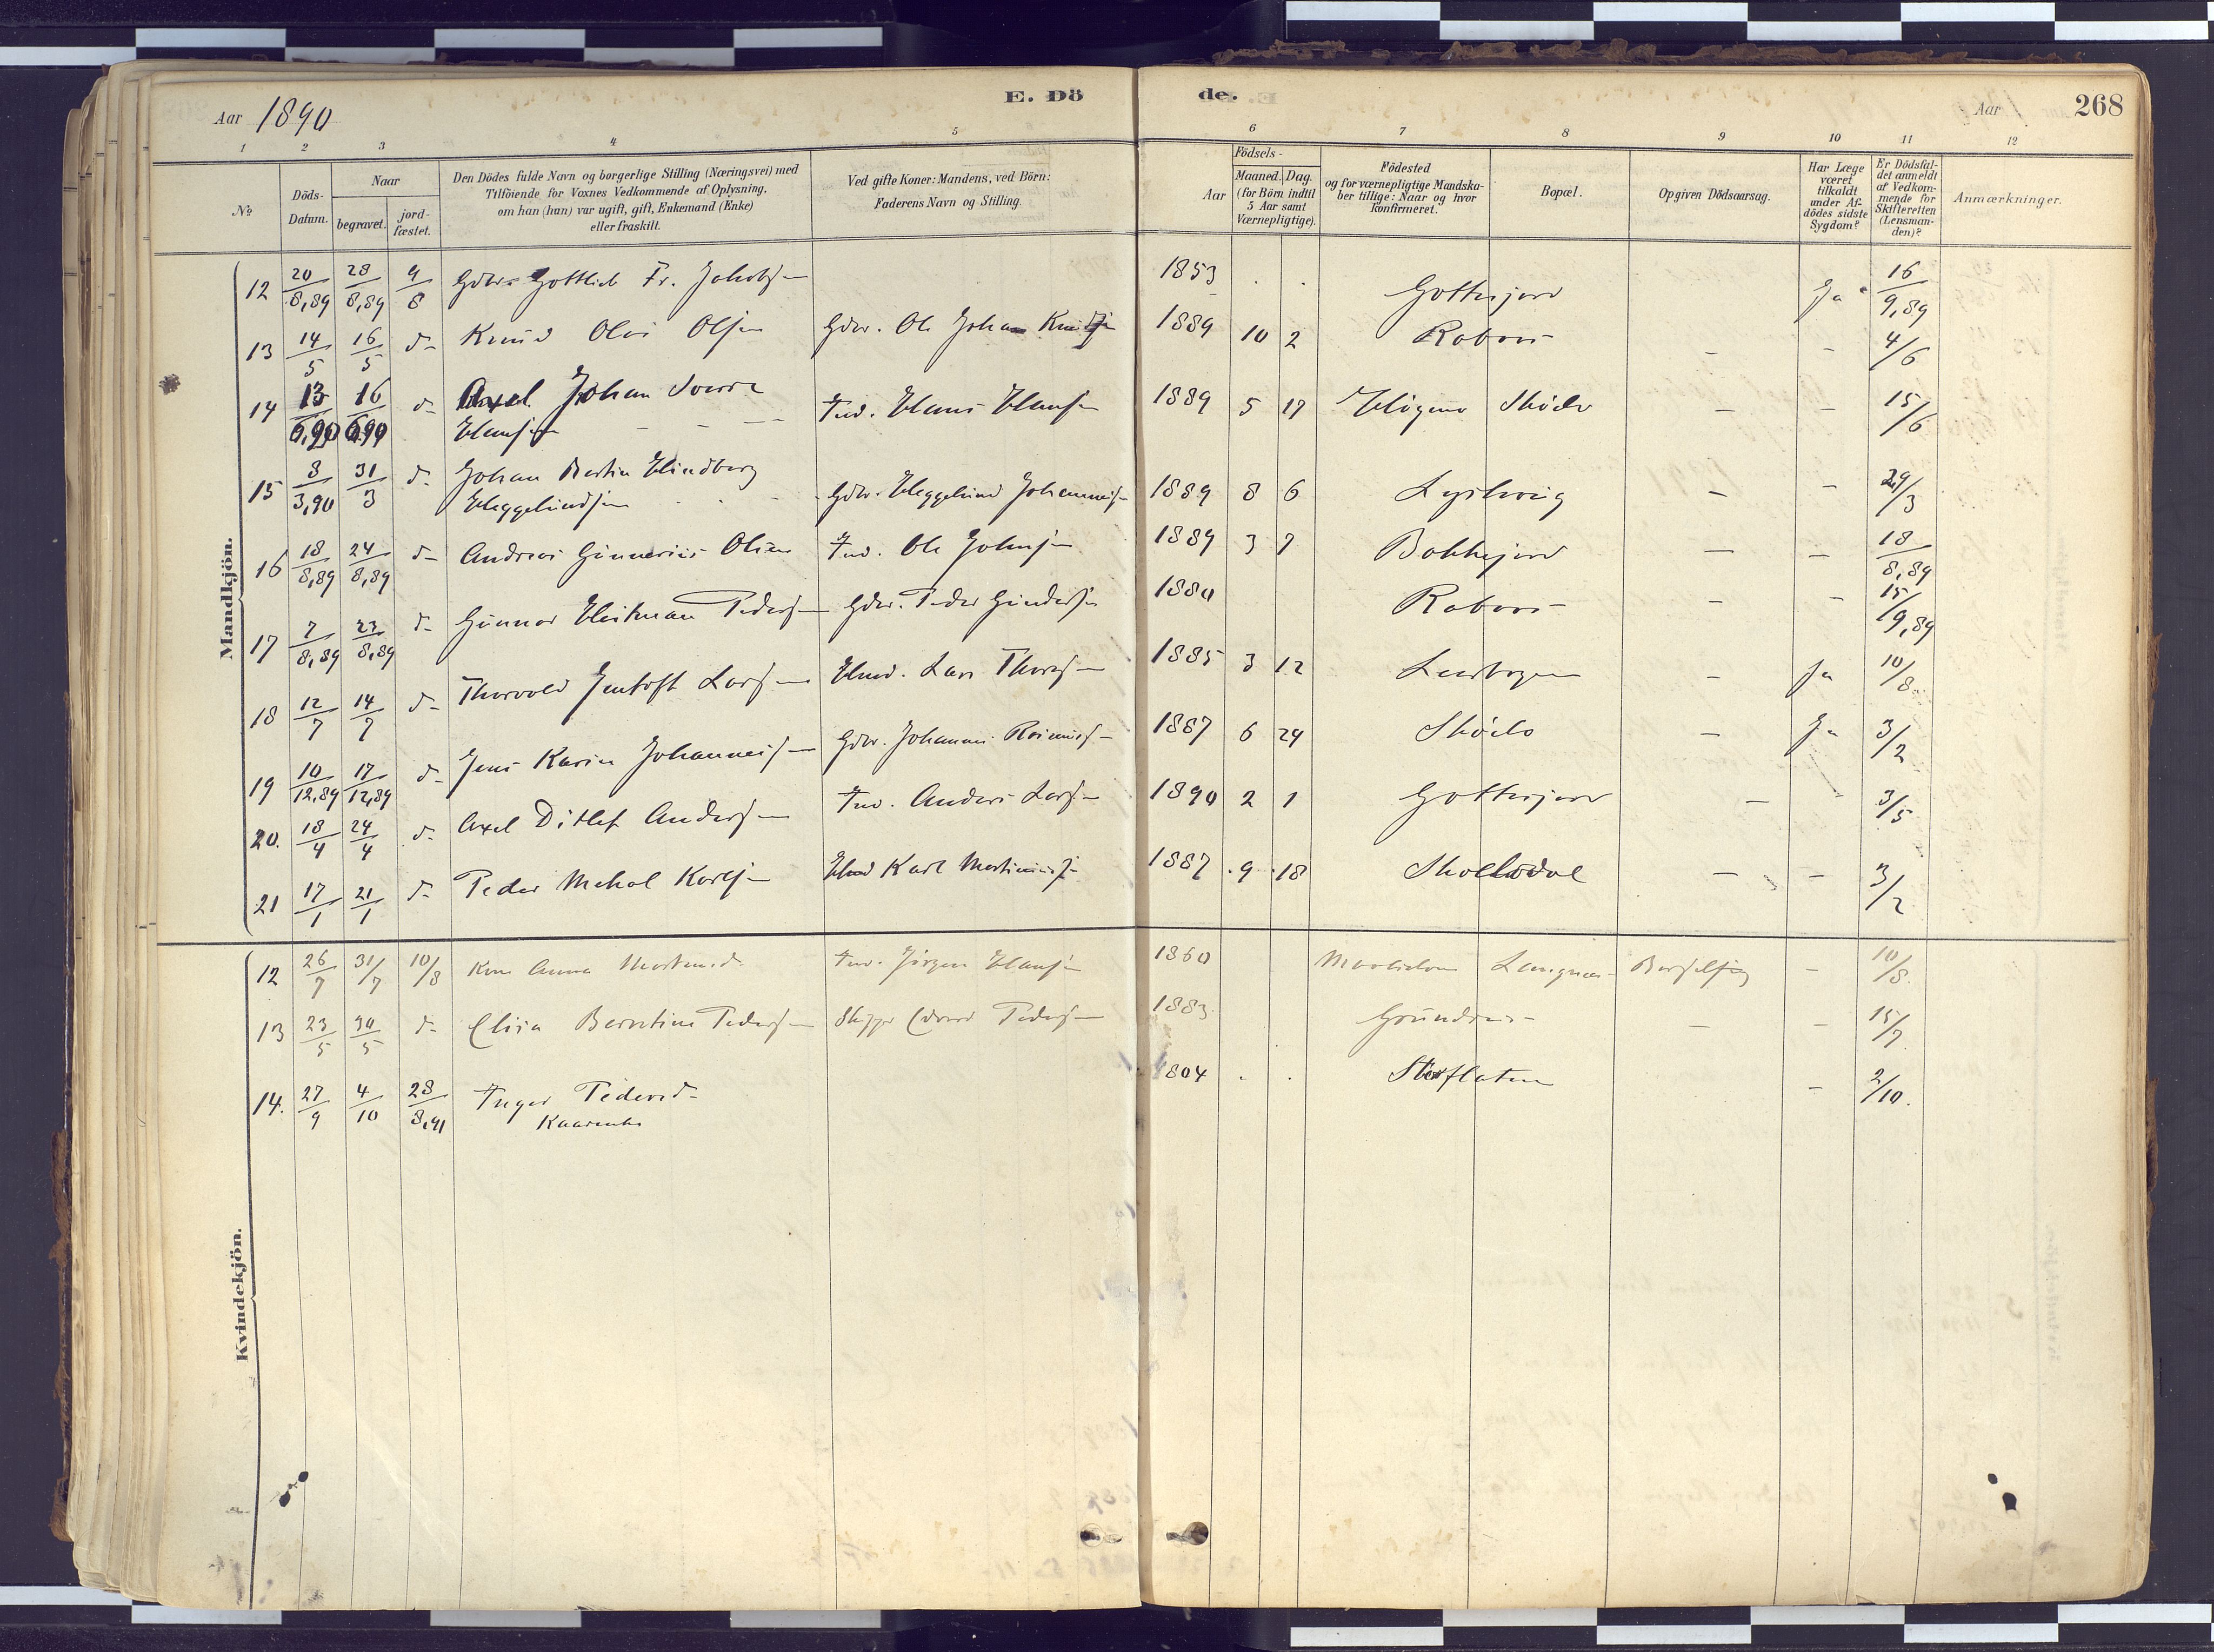 E. Dö de.
Aar 1890
Aar 268
1 2 3 4 5 6 7 8 9 10 11 12
No
Döds-Datum.
Naar
begravet.
jord-fæstet.
Den Dödes fulde Navn og borgerlige Stilling (Næringsvei) med
Tilföiende for Voxnes Vedkommende af Oplysning,
om han (hun) var ugift, gift, Enkemand (Enke)
eller fraskilt.
Ved gifte Koner: Mandens, ved Börn:
Faderens Navn og Stilling.
Födsels-
Aar
Maaned. Dag.
(for Börn indtil
5 Aar samt
Værnepligtige).
Födested
og for værnepligtige Mandska-
ber tillige: Naar og hvor
konfirmeret.
Bopæl.
Opgiven Dödsaarsag.
Har Læge
været
tilkaldt
under Af-
dödes sidste
Sygdom?
Er Dödsfal-
det anmeldt
af Vedkom-
mende for
Skifteretten
(Lensman-
den)?
Anmærkninger.
Mandkjön.
12 20/8,89 28/8,89 9/8 Gdbr. Gottlieb Fr. Jakobsen 1853 . . Gottesjord Ja 16/9,89
13 14/5 16/5 d- Knud Olai Olsen Gdbr. Ole Johan 1889 10 2 - - 4/6
14 13/6,90 16/6,90 d- Axel Johan
Hansen Ind. Hans Hansen 1889 5 17 - - 15/6
15 8/3,90 31/3 d- Johan Martin Hindberg
Heggelundsen Gdbr. Heggelund Johannessen 1889 8 6 Lysbveig - - 29/3
16 18/8,89 24/8,89 d- Andreas Ginnerius Olsen Ind. Ole Johnsen 1889 3 7 Bakkejord - - 18/8,89
17 7/8,89 23/8,89 d- Gunnar Heitman Pedersen Gdbr. Peder 1880 - - 15/9,89
18 12/7 14/7 d- Thorvald Jentoft Larsen Hmd. Lars Thoresen 1885 3 12 - Ja 10/8
19 10/12,89 17/12,89 d- Jens Karin Johannessen Gdbr. Johannes 1887 6 24 - Ja 3/2
20. 18/4 24/4 d- Axel Ditlef Andersen Ind. Anders Larsen 1890 2 1 Gottesjord - - 3/5
21 17/1 21/1 d- Peder Mekal Karlsen Hmd Karl Martinussen 1887 9 18 - - 3/2
Kvindekjön.
12 26/7 31/7 10/8 Kone Anna Mortensd. Ind. Jörgen Hansen 1860 Langnes - 10/8
13 23/5 30/5 d- Elisa Berntine Pedersen Edvard Pedersen 1883 - - 15/7
14. 27/9 4/10 28/8,91 Inger Pedersd- 1804 . . Storflaten - 2/10.